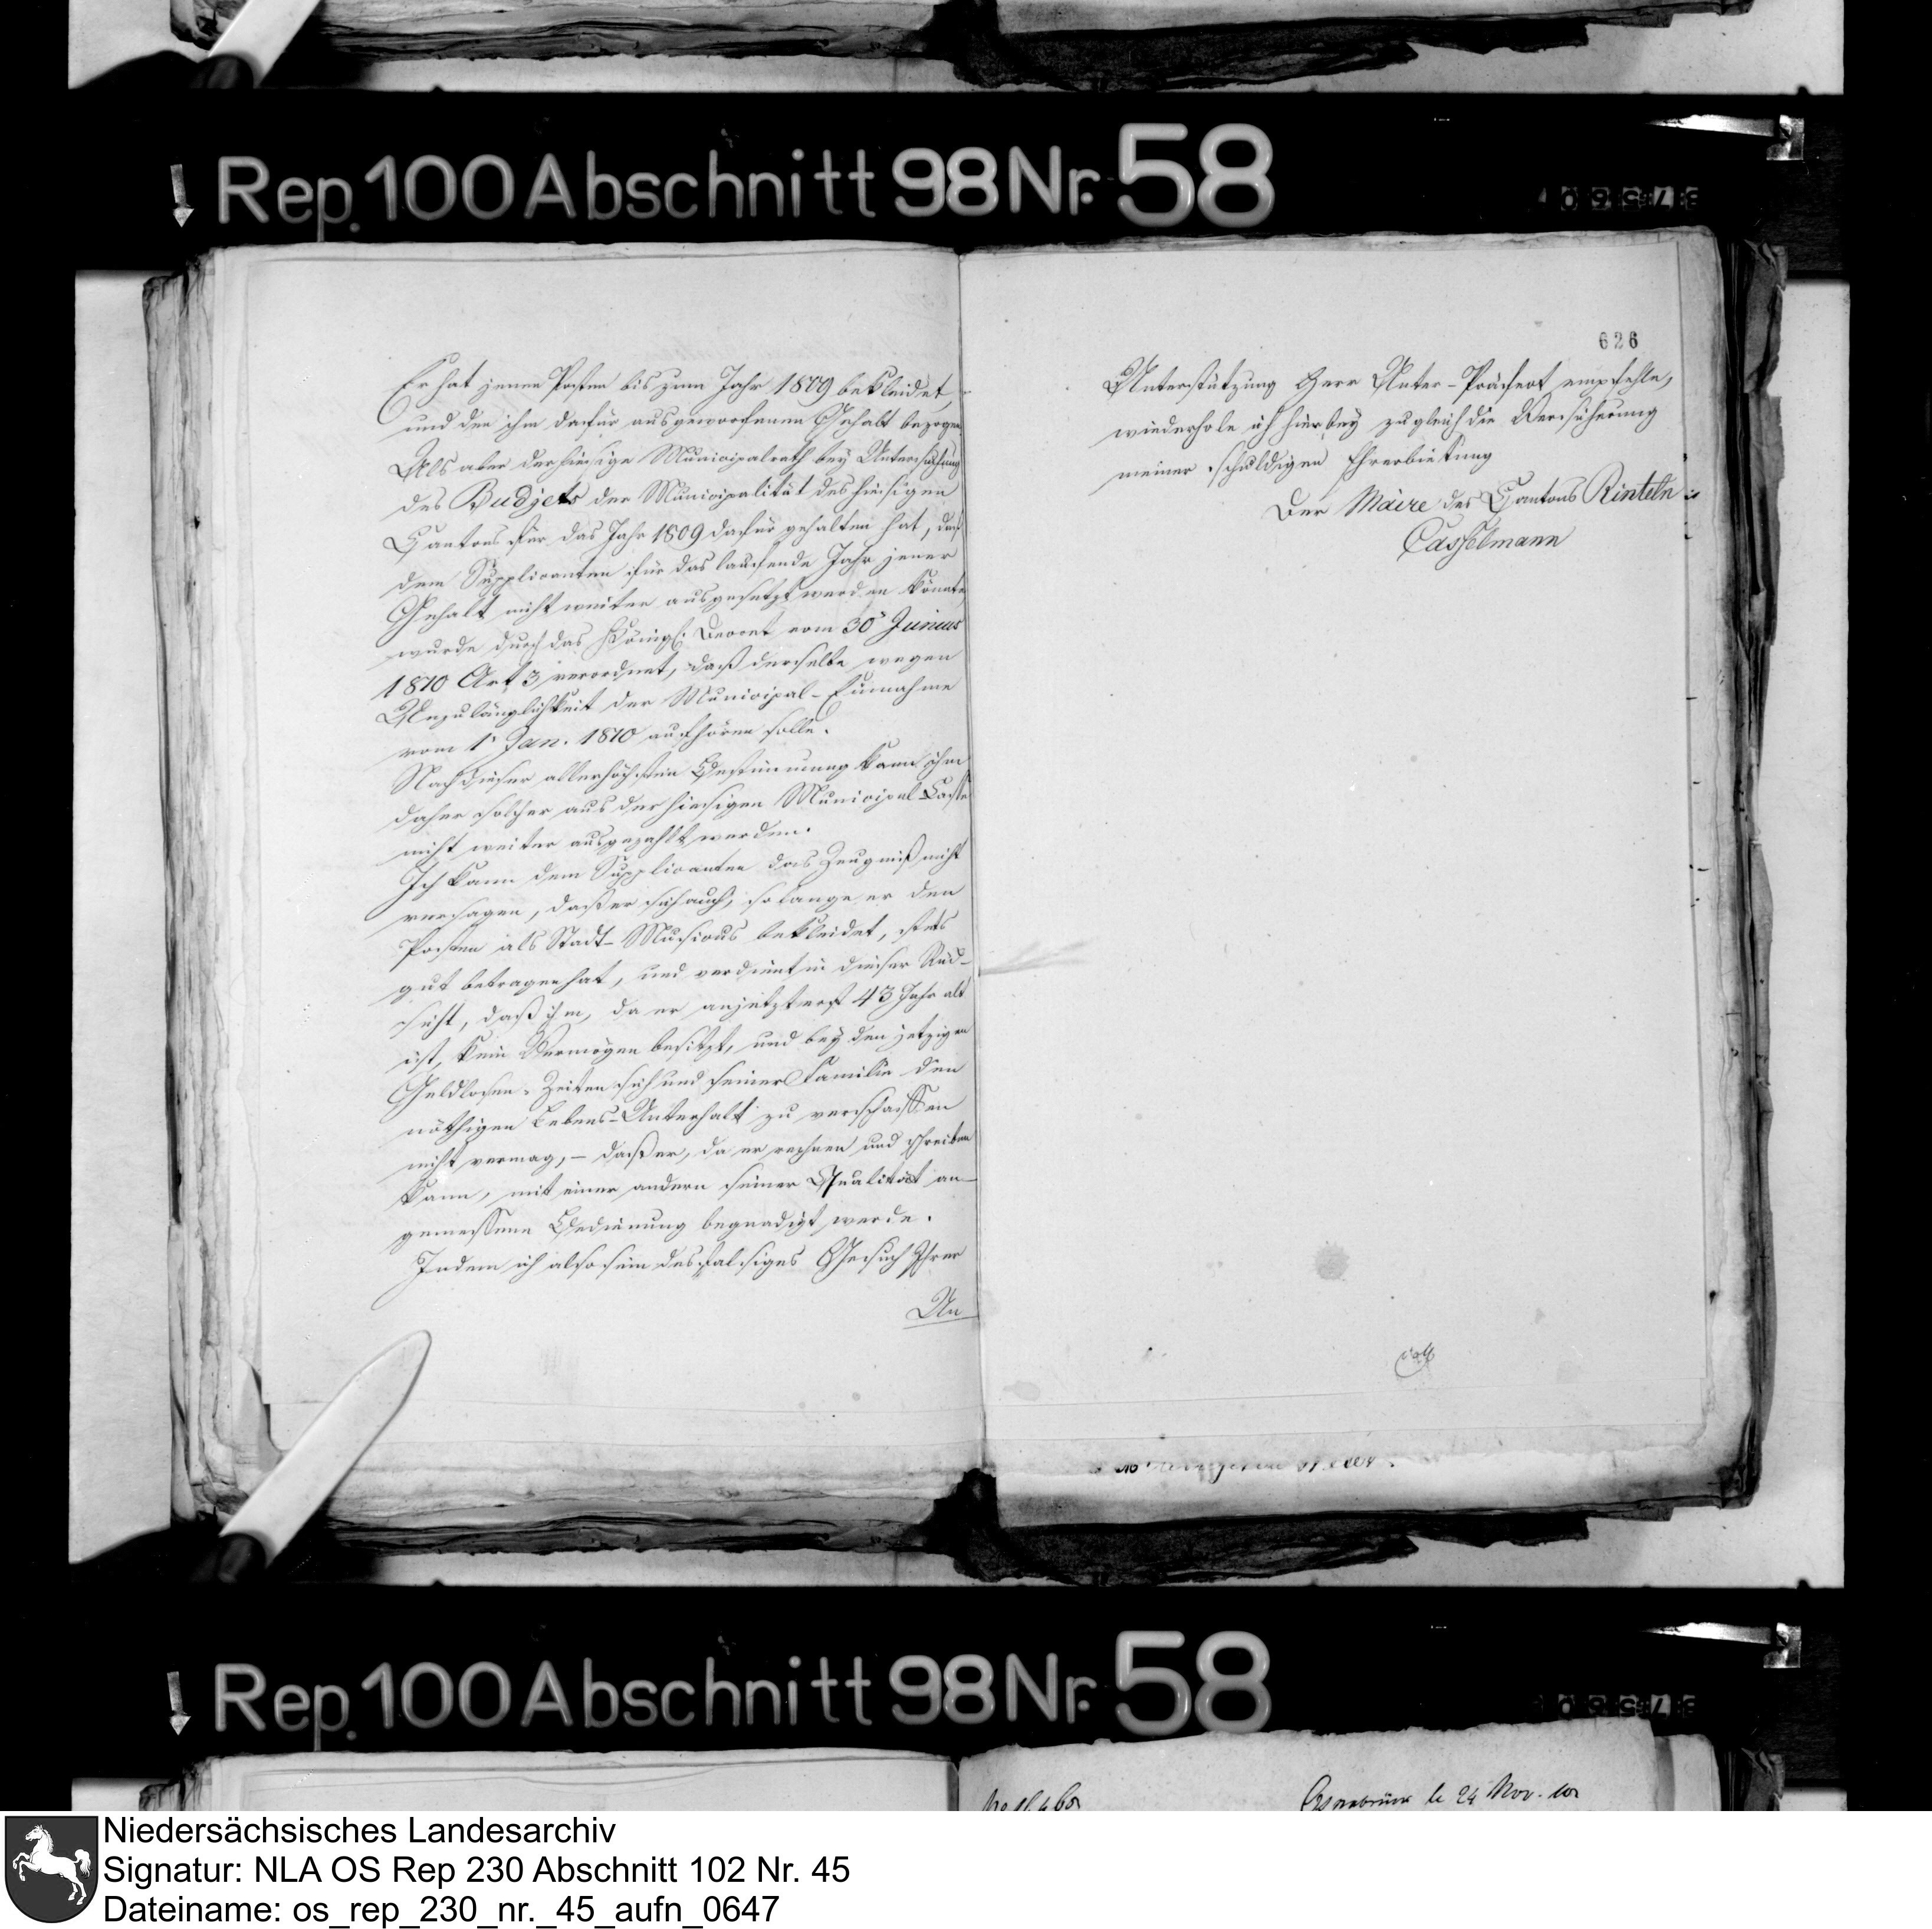 Rep. 100 Abschnitt 98 Nr. 58
Er hat jenen Posten bis zum Jahr 1809 bekleidet,
und den ihm dafür ausgeworfenen Gehalt bezogen.
Als aber der hiesige Municipalrath bey Untersuchung
des Budjets der Municipalität des hiesigen
Cantons für das Jahr 1809 dafür gehalten hat, daß
dem Supplicanten für das laufende Jahr jener
Gehalt nicht weiter ausgesetzt werden könnte,
wurde durch das Königl. Decret vom 30n Junius
1810 Art 3 verordnet, daß derselbe wegen
Unzulänglichkeit der Municipal-Einnahme
vom 1n Jan. 1810 aufhören solle.
Nach dieser allerhöchsten Bestimmung kann ihm
daher solcher aus der hiesigen Municipal-Casse
nicht weiter ausgezahlt werden.
Ich kann dem Supplicanten das Zeugniß nicht
versagen, daß er sich auch, so lange er den
Posten als Stadt-Musicus bekleidet, stets
gut betragen hat, und verdient in dieser Rück-
sicht, daß ihm, da er anjetzt erst 43 Jahr alt
ist, kein Vermögen besitzt, und bey den jetzigen
Geldlosen-Zeiten sich und seiner Familie den
nöthigen Lebens-Unterhalt zu verschaffen
nicht vermag, – daß er, da er rechnen und schreiben
kann, mit einer andern seiner Qualität an-
gemessene Bedienung begnadigt werde.
Indem ich also sein desfalsiges Gesuch Ihrer
Un
626
Unterstützung Herr Unter-Präfect empfehle,
wiederhole ich hierbey zugleich die Versicherung
meiner schuldigen Ehrerbietung
Der Maire des Cantons Rinteln
Casselmann
Rep. 100 Abschnitt 98 Nr. 58
Osnabrück le 24 Nov. 10
Niedersächsisches Landesarchiv
Signatur: NLA OS Rep 230 Abschnitt 102 Nr. 45
Dateiname: os_rep_230_nr._45_aufn_0647